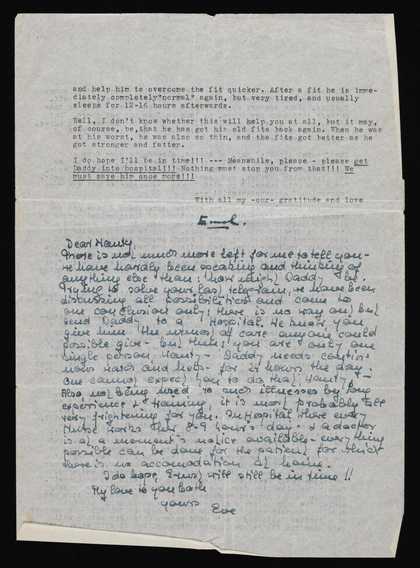 and help him to overcome the fit quicker. After a fit he is imme-
diately completely"normal" again, but very tired, and usually
sleeps for 12-16 hours afterwards.
Well, I don't know whether this will help you at all, but it may,
of course, be,that he has got his old fits back again. When he was
at his worst, he was also so thin, and the fits got better as he
got stronger and fatter.
I do hope I'll be in time!!! --- Meanwhile, please - please get
Daddy into hospital!!! Nothing must stop you from that!!! We
must save him once more!!!
With all my -our- gratitude and love
Dear Hanly
There is not much more left for me to tell you-
we have hardly been speaking and thinking of
anything else than: how might Daddy be.
Trying to solve your last telegram, we have been
discussing all possibilities and came to
one conclusion only: there is no way out but
send Daddy to a Hospital. We know you
give him the utmost of care anyone could
possible give - but then: you are only one
single person, Hanly - Daddy needs continu-
ous watch and help - for 24 hours the day -
one cannot expect you to do that, Hanly! -
Also not being used to such illnesses by long
experience & training, it is most probably all
very frightening for you. In Hospital there every
Nurse works their 8-9 hours a day - & a doctor
is at a moment's notice available - everything
possible can be done for the patient, for which
there is no accomodation at home.
I do hope, will still be in time!!
My love to you both
yours
Eve